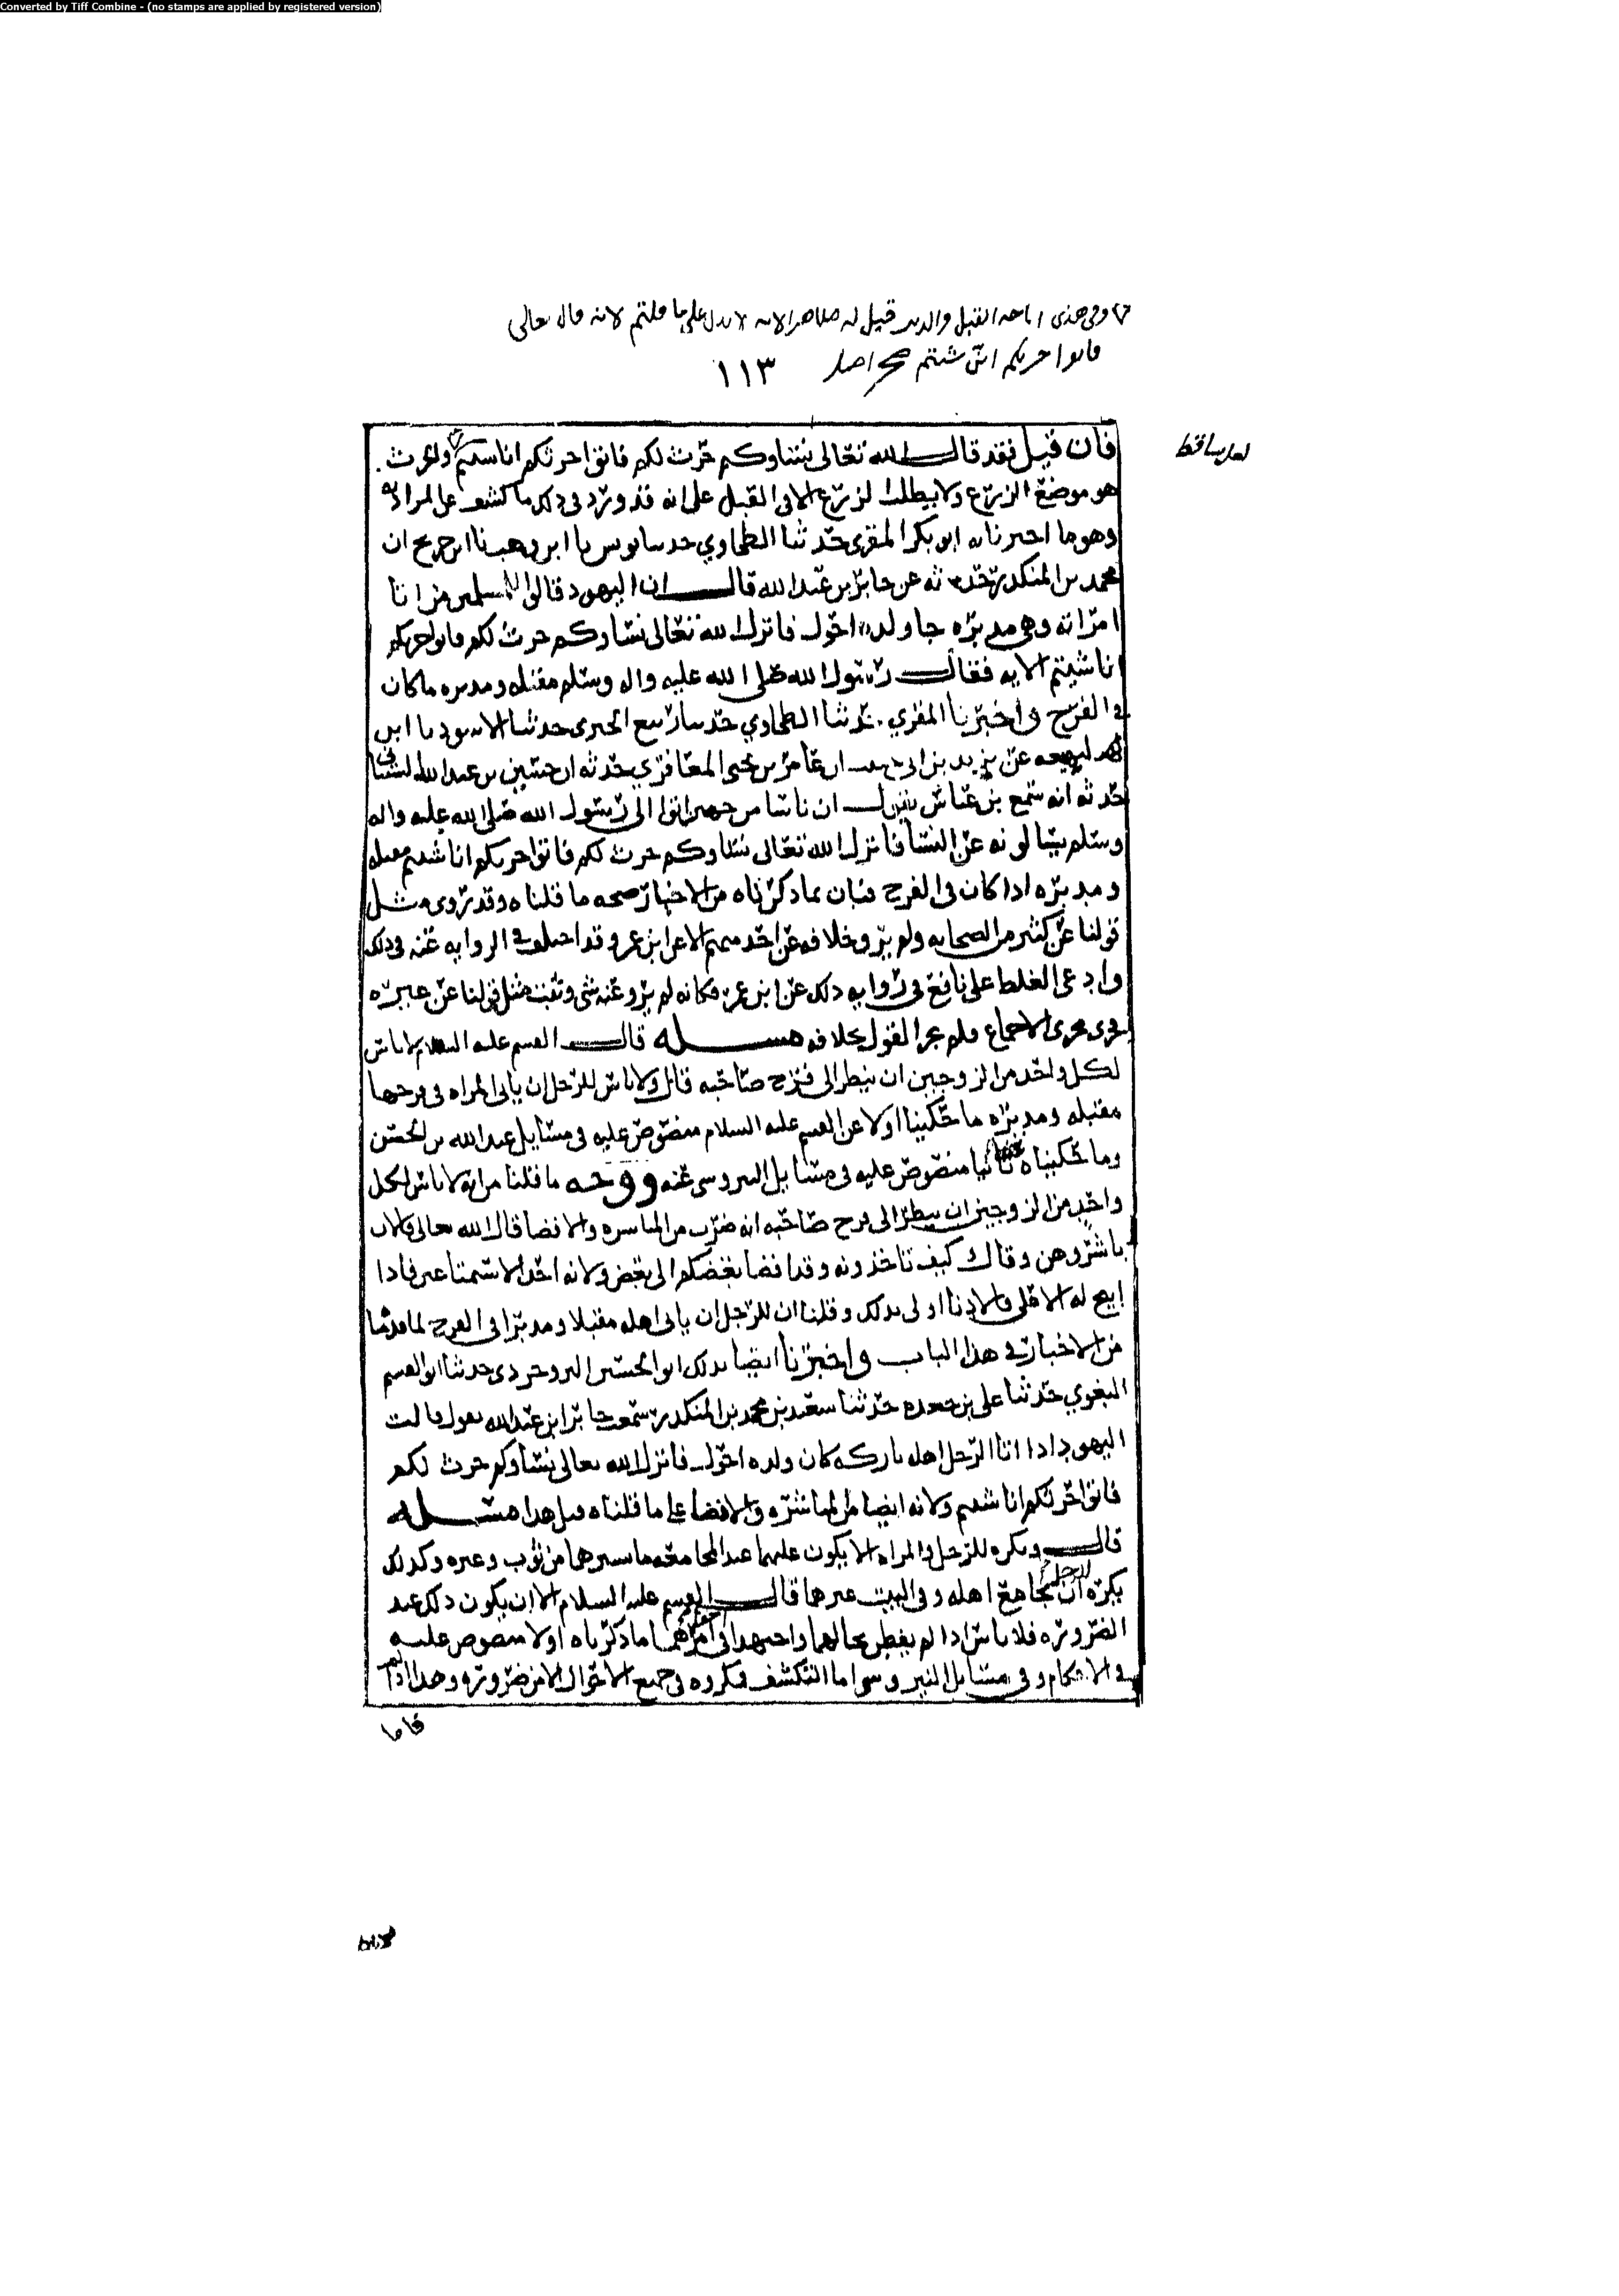 Converted by Tiff Combine - (no stamps are applied by registered version)
وفي هذي اباحه القبل والدبر قيل له ظاهر الايه لا يدل على ما قلتم لانه قال تعالى
فاتوا حرثكم انى شئتم صح اصل ١١٣
لعل ساقط
فان قيل فقد قال الله تعالى نساوكم حرث لكم فاتوا حرثكم انا شئتم والحرث
هو موضع الزرع ولا يطلب الزرع الا في القبل على انه قد ورد في ذلك ما كشف عن المراد به
وهو ما اخبرنا به ابو بكر المقري حدثنا الطحاوي حدثنا يونس نا ابن وهب نا ابن جريح ان
محمد بن المنكدر حدثه عن جابر بن عبد الله قال ان اليهود قالوا للمسلمين من اتا
امراته وهي مدبره جا ولده احول فانزل الله تعالى نساوكم حرث لكم فاتوا حرثكم
انا شيتم الايه فقال رسول الله صلى الله عليه واله وسلم مقبله ومدبره ما كان
في الفرج واخبرنا المقري حدثنا الطحاوي حدثنا ربيع الجيزي حدثنا الاسود نا ابن
لهيعه عن يزيد بن ابي حبيب ان عامر بن يحيى المعافري حدثه ان حنش بن عبد الله
حدثه انه سمع بن عباس يقول ان ناسا من حمير اتوا الى رسول الله صلى الله عليه واله
وسلم يسالونه عن النسا فانزل الله تعالى نساوكم حرث لكم فاتوا حرثكم انا شئتم مقبله
ومدبره اذا كان في الفرج فبان بما ذكرناه من الاخبار صحه ما قلناه وقد روي مثل
قولنا عن كثير من الصحابه ولم يرو خلافه عن احد منهم الا عن ابن عمر وقد اختلف في الروايه عنه في ذلك
وادعى الغلط على نافع في روايه ذلك عن ابن عمر فكانه لم يرو عنه شي وثبت مثل قولنا عن غيره
فجرى مجرى الاجماع فلم يجز القول بخلافه مسله قال القسم عليه السلام لا باس
لكل واحد من الزوجين ان ينظر الى فرج صاحبه قال ولا باس للرجل ان ياتي المراه في فرجها
مقبله ومدبره ما حكيناه اولا عن القسم عليه السلام منصوص عليه في مسايل عبد الله بن الحسن
وما حكيناه ثانيا منصوص عليه في مسايل النيروسي عنه ووجه ما قلنا من انه لا باس لكل
واحد من الزوجين ان ينظر الى فرج صاحبه انه ضرب من المباشره والافضا قال الله تعالى فالان
باشروهن وقال كيف تاخذونه وقد افضا بعضكم الى بعض ولانه احد الاستمتاعين فاذا
ابيح له الاعلى فالادنا اولى بذلك وقلنا ان للرجل ان ياتي اهله مقبلا ومدبرا في الفرج لما قدمنا
من الاخبار في هذا الباب واخبرنا ايضا بذلك ابو الحسين البروجردي حدثنا ابو القسم
البغوي حدثنا علي بن جعده حدثنا سعيد بن محمد بن المنكدر سمعت جابر ابن عبد الله يقول قالت
اليهود اذا اتا الرجل اهله باركه كان ولده احول فانزل الله تعالى نساوكم حرث لكم
فاتوا حرثكم انا شئتم ولانه ايضا من المباشره والافضا على ما قلناه قبل هذا مسله
قال ويكره للرجل والمراه الا يكون عليهما عند المجامعه ما يسترهما من ثوب وغيره وكذلك
يكره للرجل ان يجامع اهله وفي البيت غيرهما قال القسم عليه السلام الا ان يكون ذلك عند
الضروره فلا باس اذا لم يفطن بحالهما واجتهدا في اخفا امرهما ما ذكرناه اولا منصوص عليه
في الاحكام وفي مسايل النيروسي اما التكشف فمكروه في جميع الاحوال الا من ضروره وهذا اذا لم
فاما